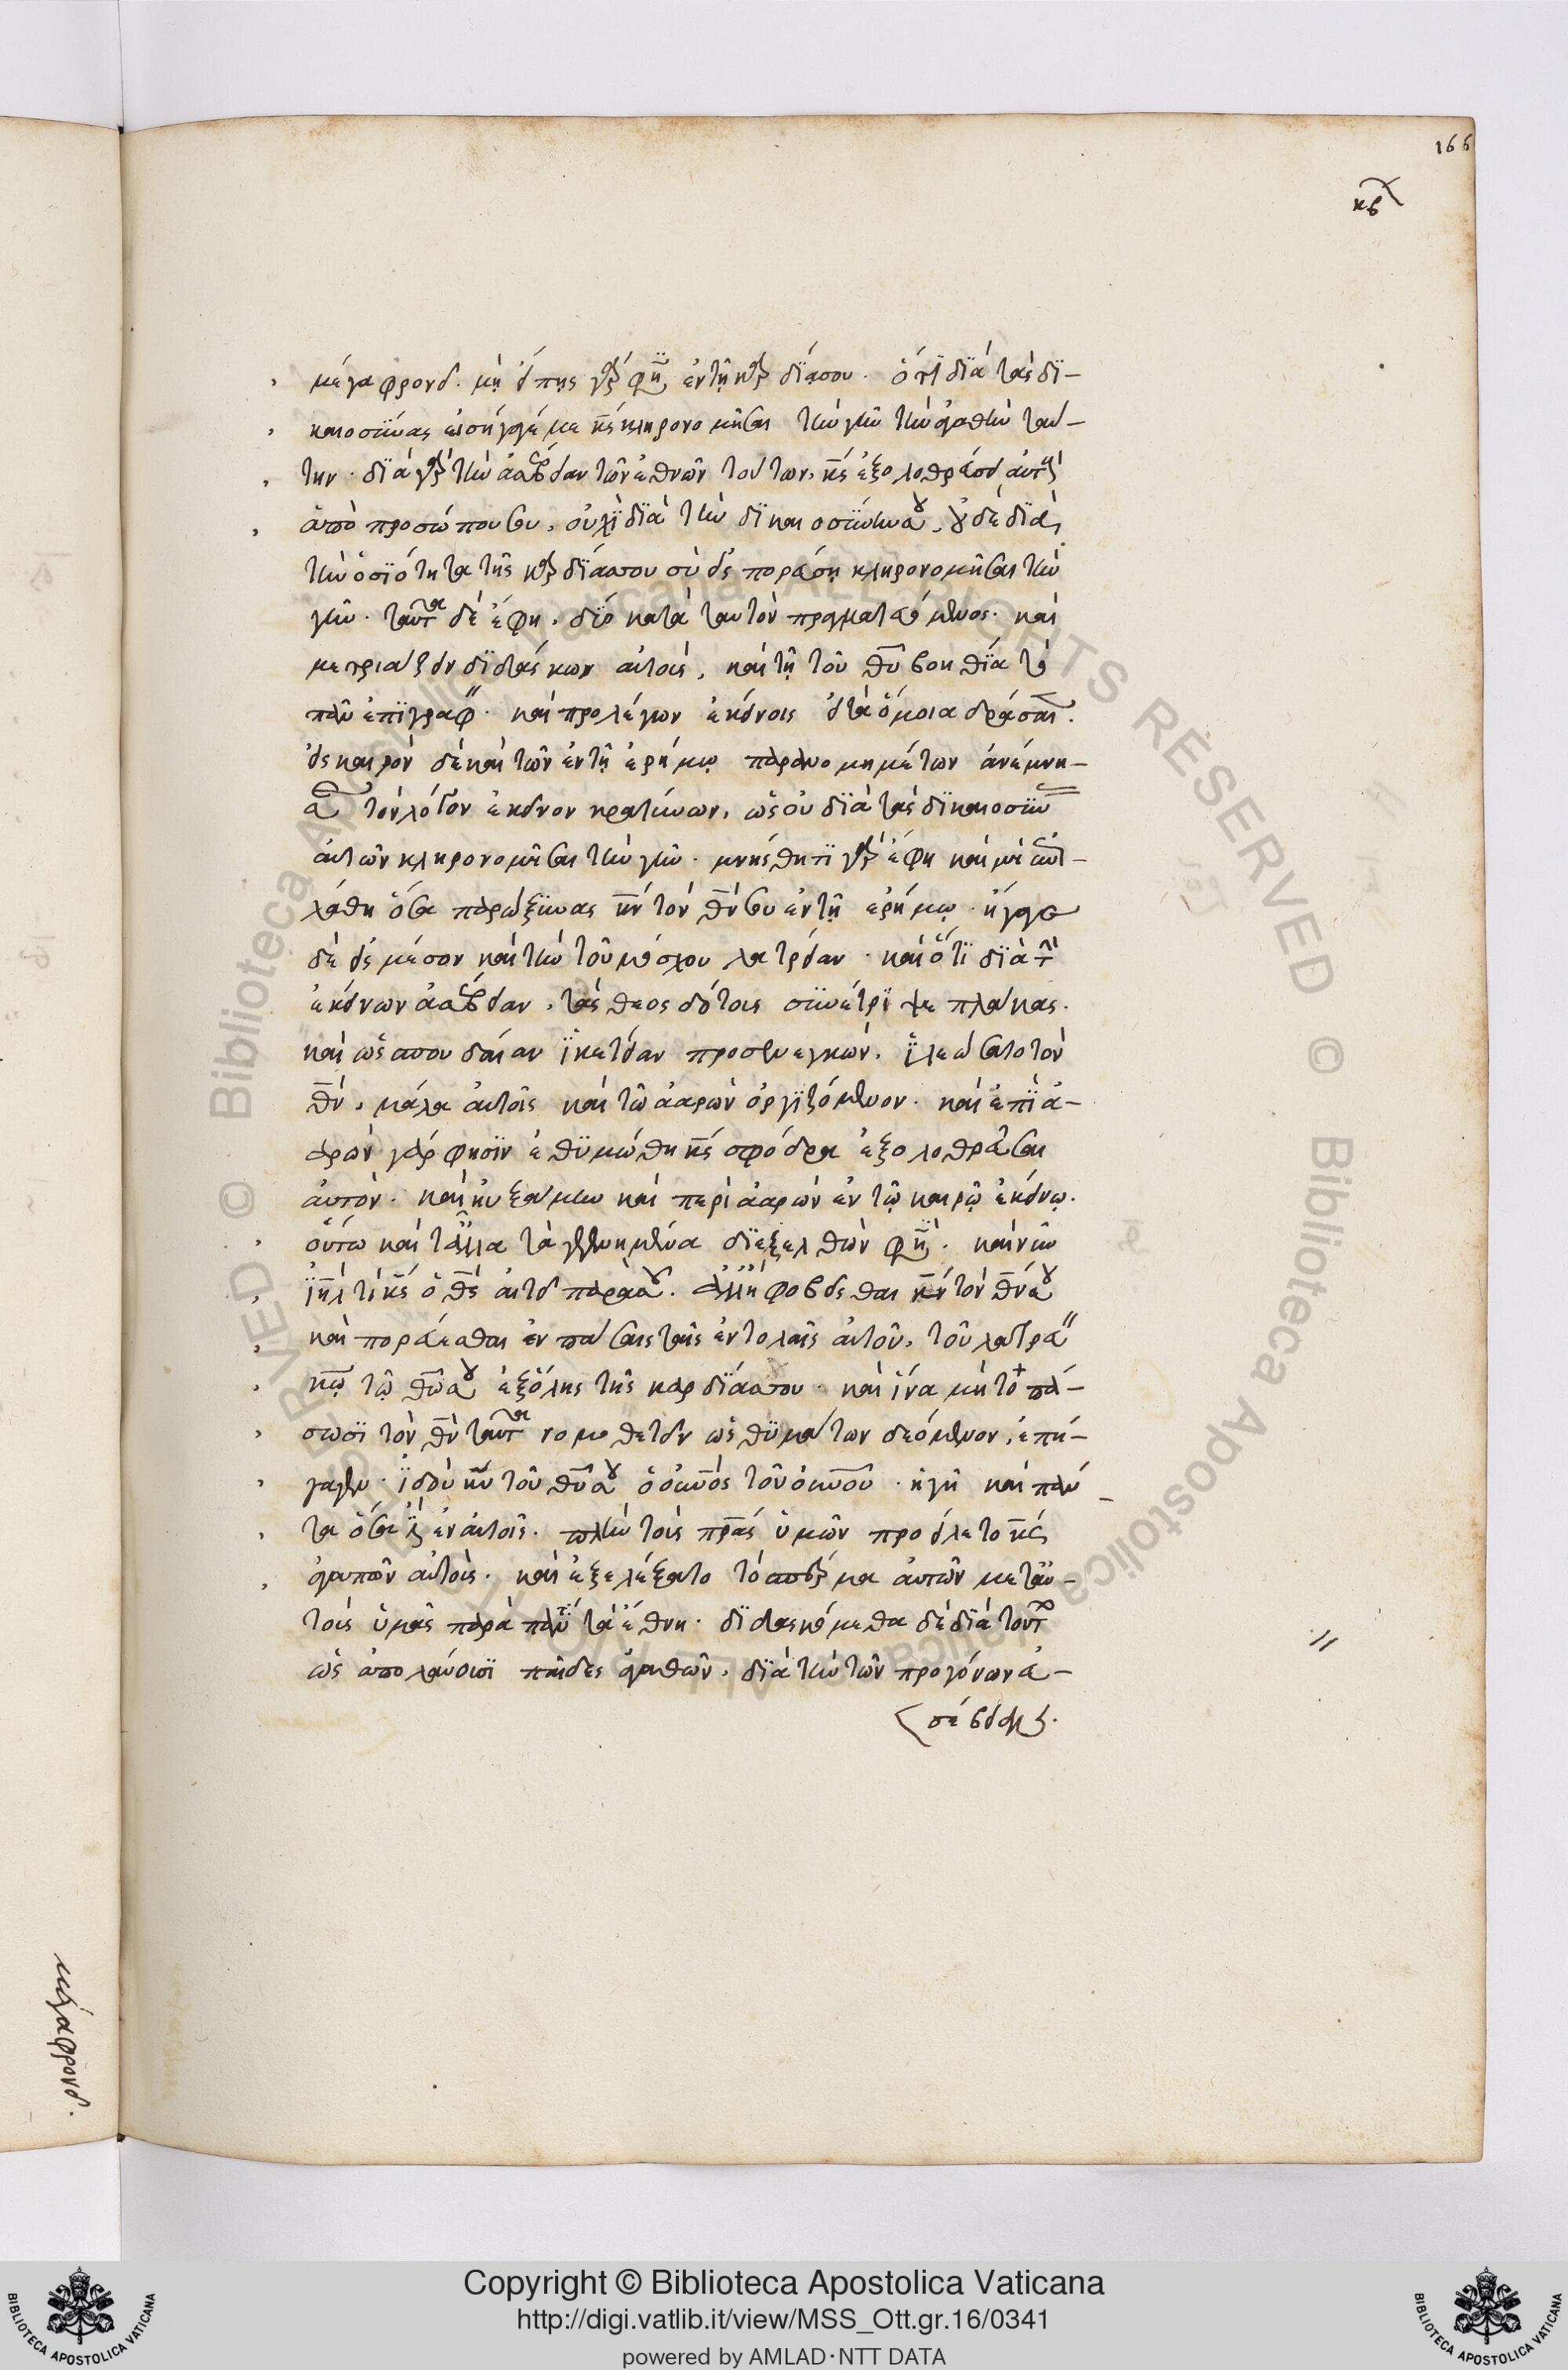 166
κβ
μέγα φρονεῖ. μὴ εἴπῃς γὰρ φησὶν ἐν τῇ καρδίᾳ σου. ὅτι διὰ τὰς δι-
καιοσύνας εἰσήγαγέ με κς κληρονομῆσαι τὴν γῆν τὴν ἀγαθὴν ταύ-
την. διὰ γὰρ τὴν ἀσέβειαν τῶν ἐθνῶν τούτων, κς ἐξολοθρεύσει αὐτοὺς
ἀπὸ προσώπου σου, οὐχὶ διὰ τὴν δικαιοσύνην σου, οὐδὲ διὰ
τὴν ὁσιότητα τῆς καρδίας σου σὺ εἰσπορεύσῃ κληρονομῆσαι τὴν
γῆν. ταῦτα δὲ ἔφη, δύο κατὰ ταυτὸν πραγματευόμενος. καὶ
μετριάζειν διδάσκων αὐτοὺς, καὶ τῇ τοῦ θυ βοηθίᾳ τὸ
πᾶν ἐπιγράφειν. καὶ προλέγων ἐκείνοις εἰ τὰ ὅμοια δράσαιεν.
εἰς καιρὸν δὲ καὶ τῶν ἐν τῇ ἐρήμῳ παρανομημάτων ἀνέμνη-
σε τὸν λόγον ἐκεῖνον κρατύνων, ὡς οὐ διὰ τὰς δικαιοσύνας
αὐτῶν κληρονομεῖσαι τὴν γῆν. μνήσθητι γὰρ ἔφη καὶ μὴ ἐπι-
λάθῃ ὅσα παρώξυνας κν τὸν θν σου ἐν τῇ ἐρήμῳ. ἤγαγε
δὲ εἰς μέσον καὶ τὴν τοῦ μόσχου λατρείαν. καὶ ὅτι διὰ τὴν
ἐκείνων ἀσέβειαν, τὰς θεοσδότους συνέτριψε πλάκας.
καὶ ὡς σπουδαίαν ἱκετείαν προσενεγκὼν, ἱλεώσατο τὸν
θν, μάλα αὐτοῖς καὶ τῷ ἀαρὼν ὀργιζόμενον. καὶ ἐπὶ ἀ-
αρὼν γὰρ φησὶν ἐθυμώθη κς σφόδρα ἐξολοθρεῦσαι
αὐτὸν. καὶ ηὐξάμην καὶ περὶ ἀαρὼν ἐν τῷ καιρῷ ἐκείνῳ.
οὕτω καὶ τἄλλα τὰ γεγενημένα διεξελθὼν φησὶ. καὶ νῦν
ιηλ τί κς ὁ θς αἰτεῖ παρὰ σοῦ. ἀλλ' ἢ φοβεῖσθαι κν τὸν θν σου
καὶ πορεύεσθαι ἐν πάσαις ταῖς ἐντολαῖς αὐτοῦ, τοῦ λατρεύειν
κω τῷ θω σου ἐξ ὅλης τῆς καρδίας σου. καὶ ἵνα μὴ το πά-
σωσι τὸν θν ταῦτα νομοθετεῖν ὡς θυμάτων δεόμενον, ἐπή-
γαγεν. ἰδοὺ κυ τοῦ θυ σου ὁ οὐνος τοῦ οὐνου. ἡ γῆ καὶ πάν-
τα ὅσα ἐστὶν ἐν αὐτοῖς. πλὴν τοὺς πρας ὑμῶν προείλετο κς
ἀγαπᾶν αὐτοὺς. καὶ ἐξελέξατο τὸ σπέρμα αὐτῶν μετ' αὐ-
τοὺς ὑμᾶς παρὰ πάντα τὰ ἔθνη. διδασκόμεθα δὲ διὰ τούτων
ὡς ἀπολαύουσι παῖδες ἀγαθῶν, διὰ τὴν τῶν προγόνων εὐ-
σέβειαν.
μέγα φρονεῖ.
Copyright © Biblioteca Apostolica Vaticana
http://digi.vatlib.it/view/MSS_Ott.gr.16/0341
powered by AMLAD·NTT DATA